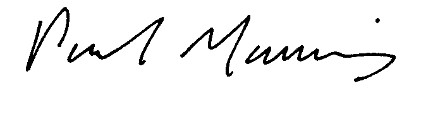 Paul Manning